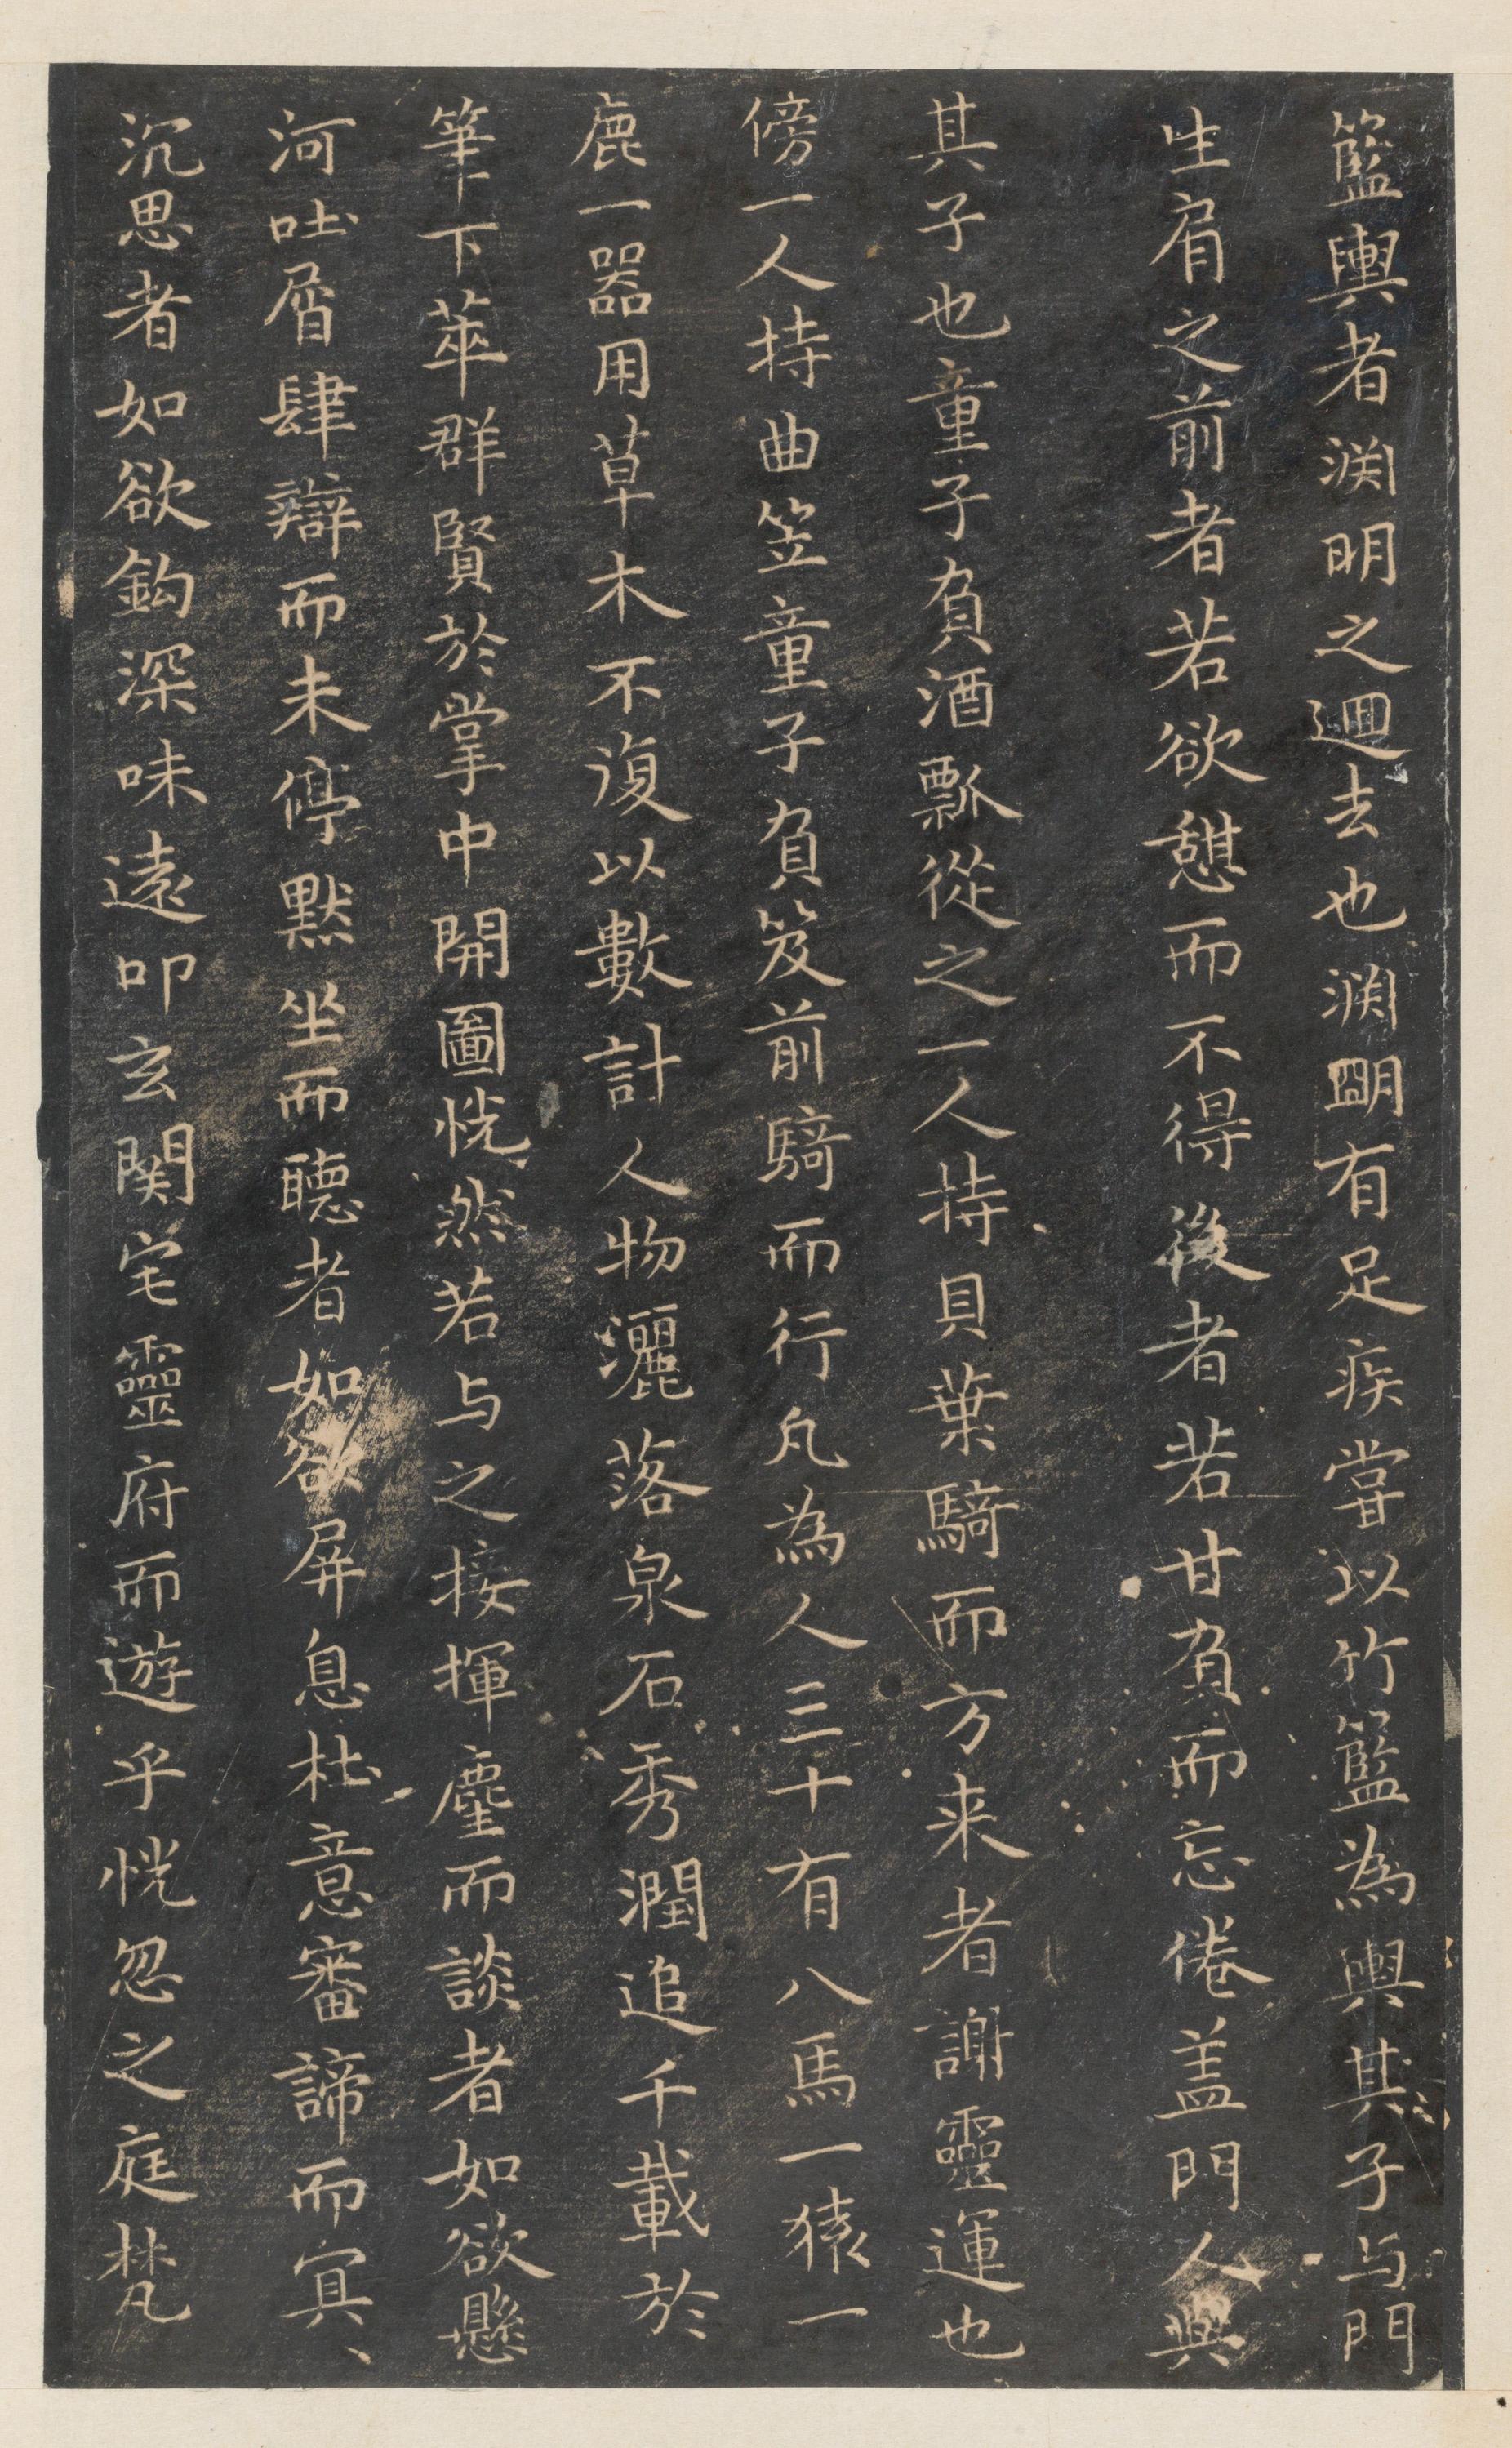 籃輿者渕明之迴去也渕朙有足疾甞以竹籃為輿其子与門
生肩之前者若欲憇而不得後者若甘負而忘倦盖門人與
其子也童子負酒瓢從之一人持貝葉騎而方来者謝靈運也
傍一人持曲笠童子負笈前騎而行凡為人三十有八馬一猿一
鹿一器用草木不復以數計人物灑落泉石秀潤追千載於
筆下萃群賢於掌中開圖恍然若与之接揮麈而談者如欲懸
河吐屑肆辯而未停默坐而聽者如欲屏息杜意審諦而冥、
沉思者如欲鈎深味遠叩玄関宅靈府而遊乎恍忽之庭梵